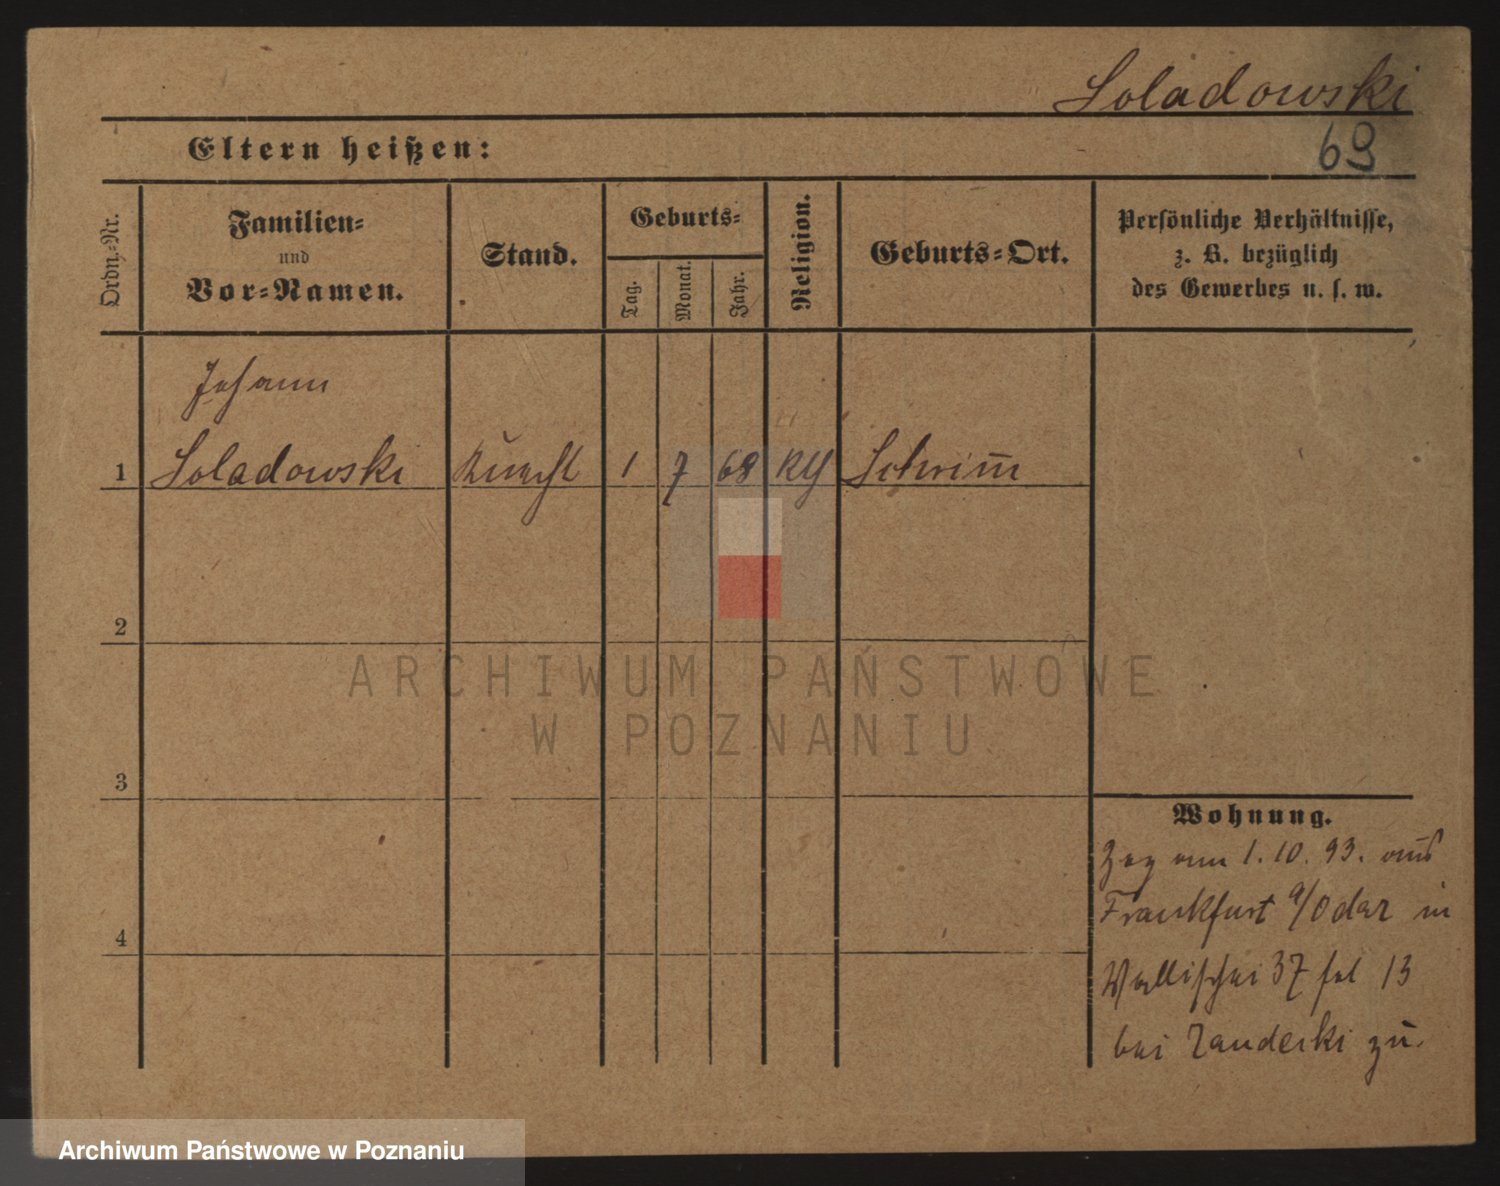 Soladowski
69
Eltern heißen:
Ordn.-Nr.
Familien-
und
Vor-Namen.
Stand.
Geburts-
Tag.
Monat.
Jahr.
Religion.
Geburts-Ort.
Persönliche Verhältnisse,
z. B. bezüglich
des Gewerbes u. s. w.
Johann
1 Soladowski Knecht 1 7 68 Schrim̄
2
3
4
Wohnung.
Zog am 1. 10. 93. aus
Frankfurt a/Oder in
Wallischei 37 fol 13
bei zu.
ARCHIWUM PAŃSTWOWE
W POZNANIU
Archiwum Państwowe w Poznaniu